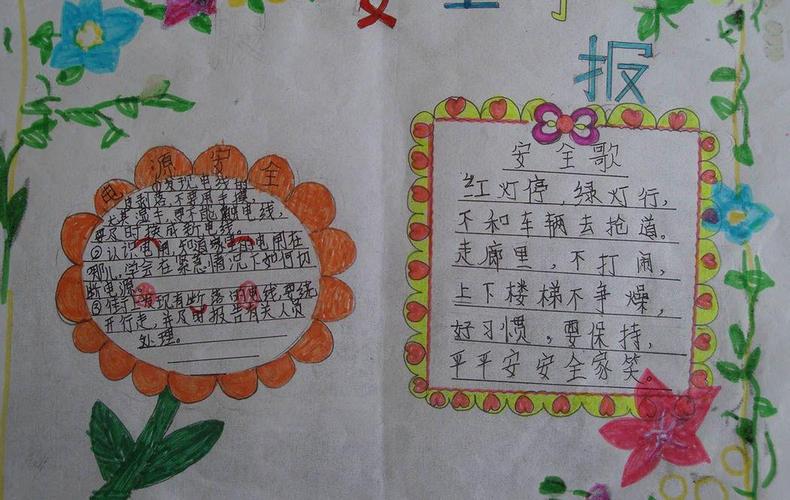 安全手
报
电源安全
①发现电线的
皮剥落,不要用手摸,
尤其湿手,更不能触电线,
要及时换成新电线。
②认识电闸,知道家中电闸在
哪儿,学会在紧急情况下如何切
断电源。
③街上发现有断落的电线,要绕
开行走,并及时报告有关人员
处理。
安全歌
红灯停,绿灯行,
不和车辆去抢道。
走廊里,不打闹,
上下楼梯不争燥,
好习惯,要保持,
平平安安全家笑。